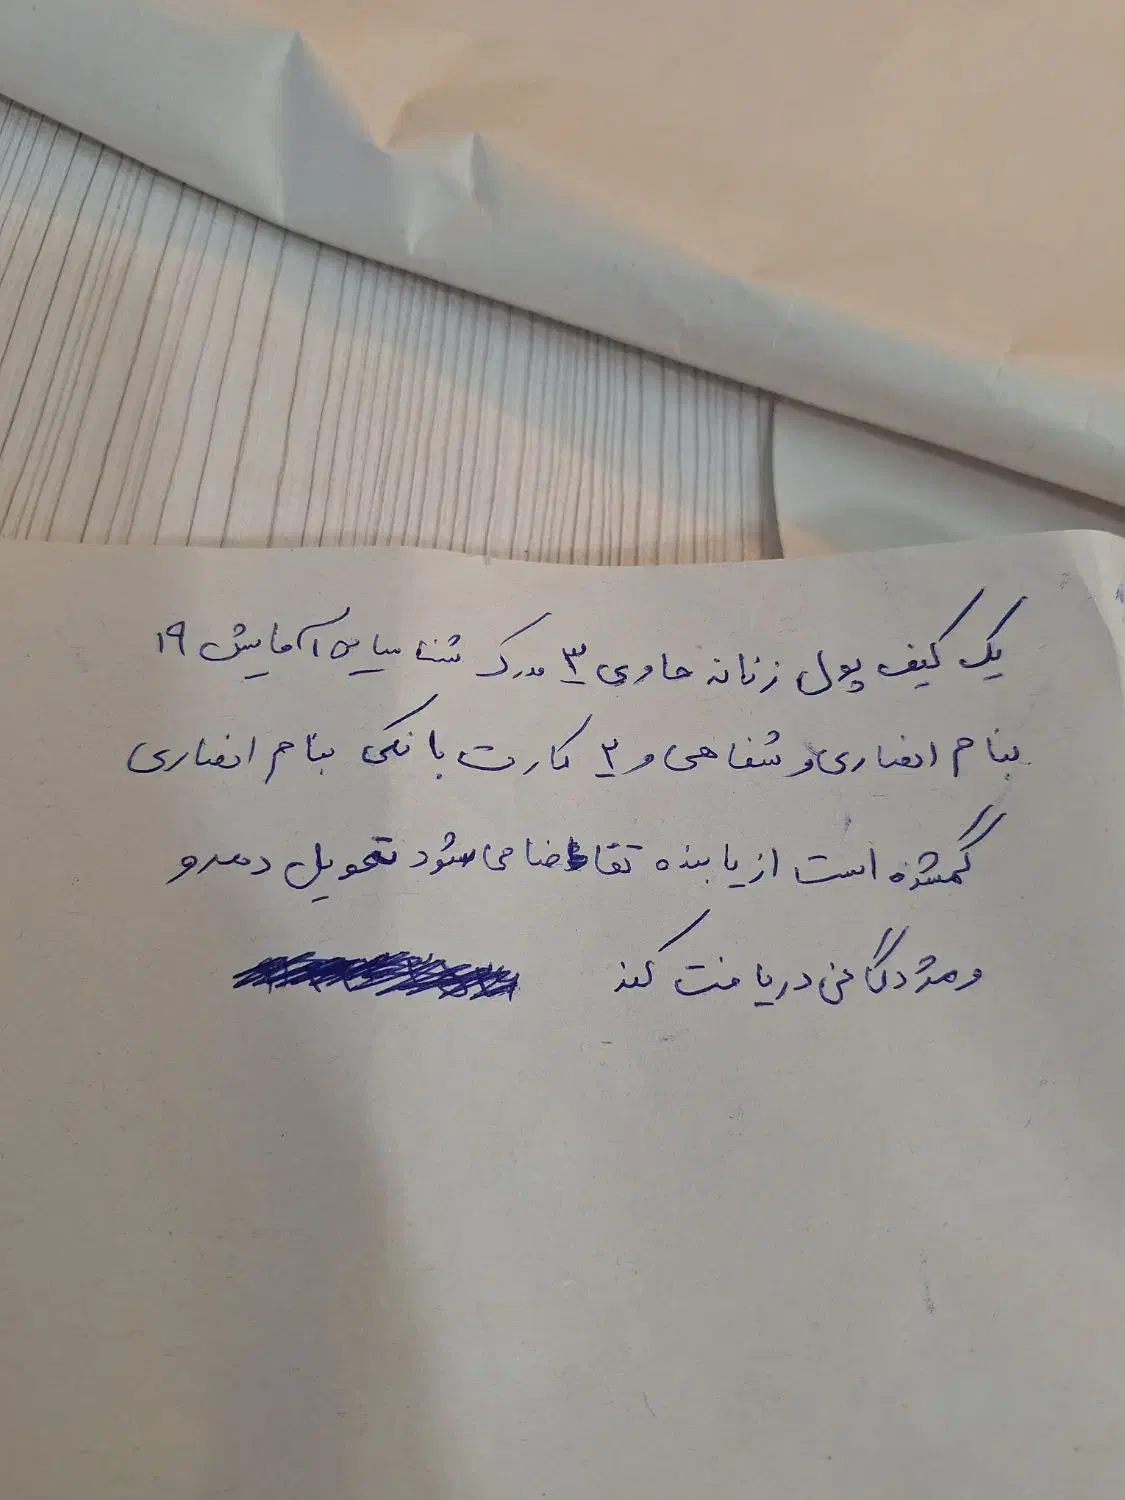 یک کیف پول زنانه حاوی ۳ مدرک شناسایی آمایش ۱۹
بنام انصاری و شفاهی و ۳ کارت بانکی بنام انصاری
گمشده است از یابنده تقاضا می شود تحویل دهد و
و مژدگانی دریافت کند